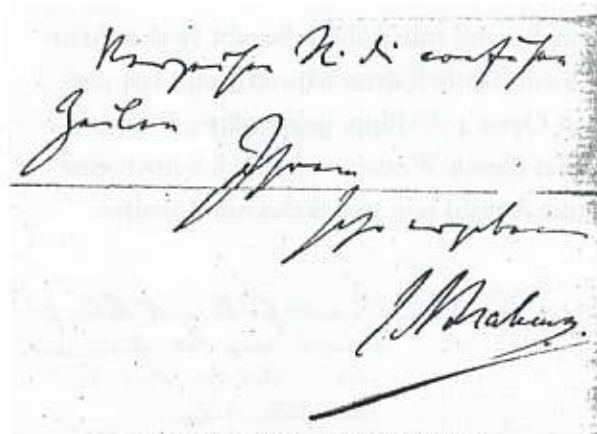 Verzeihen Sie die confusen
Zeilen Ihrem
sehr ergebenen
J. Brahms.